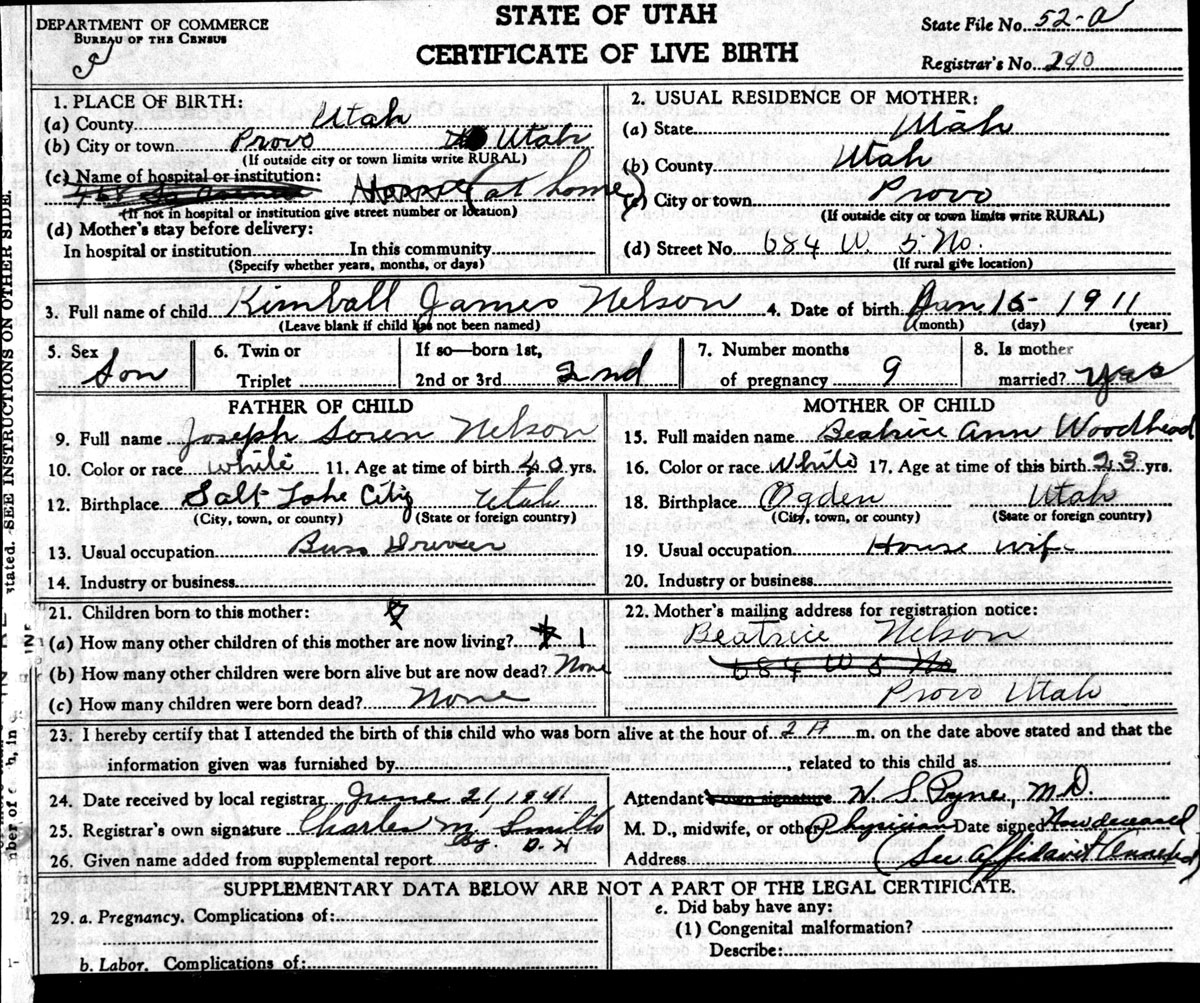 DEPARTMENT OF COMMERCE
BUREAU OF THE CENSUS
STATE OF UTAH
CERTIFICATE OF LIVE BIRTH
State File No. 52-a
Registrar's No. 240
1. PLACE OF BIRTH:
(a) County Utah
(b) City or town Provo Utah
(If outside city or town limits write RURAL)
(c) Name of hospital or institution:
(at home)
(If not in hospital or institution give street number or location)
(d) Mother's stay before delivery:
In hospital or institution In this community
(Specify whether years, months, or days)
2. USUAL RESIDENCE OF MOTHER:
(a) State Utah
(b) County Utah
(c) City or town Provo
(If outside city or town limits write RURAL)
(d) Street No. 684 W 5 No.
(If rural give location)
3. Full name of child Kimball James Nelson 4. Date of birth Jan 15 1911
(Leave blank if child has not been named) (month) (day) (year)
5. Sex Son
6. Twin or Triplet
If so—born 1st, 2nd or 3rd 2nd
7. Number months of pregnancy 9
8. Is mother married? yes
FATHER OF CHILD
9. Full name Joseph Soren Nelson
10. Color or race white 11. Age at time of birth 40 yrs.
12. Birthplace Salt Lake City Utah
(City, town, or county) (State or foreign country)
13. Usual occupation Buss Driver
14. Industry or business
MOTHER OF CHILD
15. Full maiden name Beatrice Ann Woodhead
16. Color or race White 17. Age at time of this birth 23 yrs.
18. Birthplace Ogden Utah
(City, town, or county) (State or foreign country)
19. Usual occupation House wife
20. Industry or business
21. Children born to this mother:
(a) How many other children of this mother are now living? 1
(b) How many other children were born alive but are now dead? None
(c) How many children were born dead? None
22. Mother's mailing address for registration notice:
Beatrice Nelson
684 W 5 No
Provo Utah
23. I hereby certify that I attended the birth of this child who was born alive at the hour of 2 A m. on the date above stated and that the
information given was furnished by related to this child as
24. Date received by local registrar June 21, 1941
25. Registrar's own signature Charles M. Smith
By. D. H
26. Given name added from supplemental report
Attendant own signature N. S. Pyne, M.D.
M. D., midwife, or other Physician Date signed Now deceased
Address (See affidavit Annexed)
SUPPLEMENTARY DATA BELOW ARE NOT A PART OF THE LEGAL CERTIFICATE.
29. a. Pregnancy. Complications of:
b. Labor. Complications of:
e. Did baby have any:
(1) Congenital malformation?
Describe:
SEE INSTRUCTIONS ON OTHER SIDE.